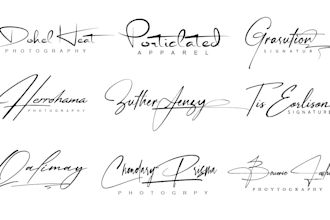 Dohel Heat
PHOTOGRAPHY
Porticlated
APPAREL
Grasution
SIGNATUR
Herrohama
PHOTOGRAPHY
Zuther Jenzy
Tis Eorlison
SIGNATURE
Qalimay
Chendary Prisma
PHOTOGRPY
Bownie
PROYTOGRAPHY